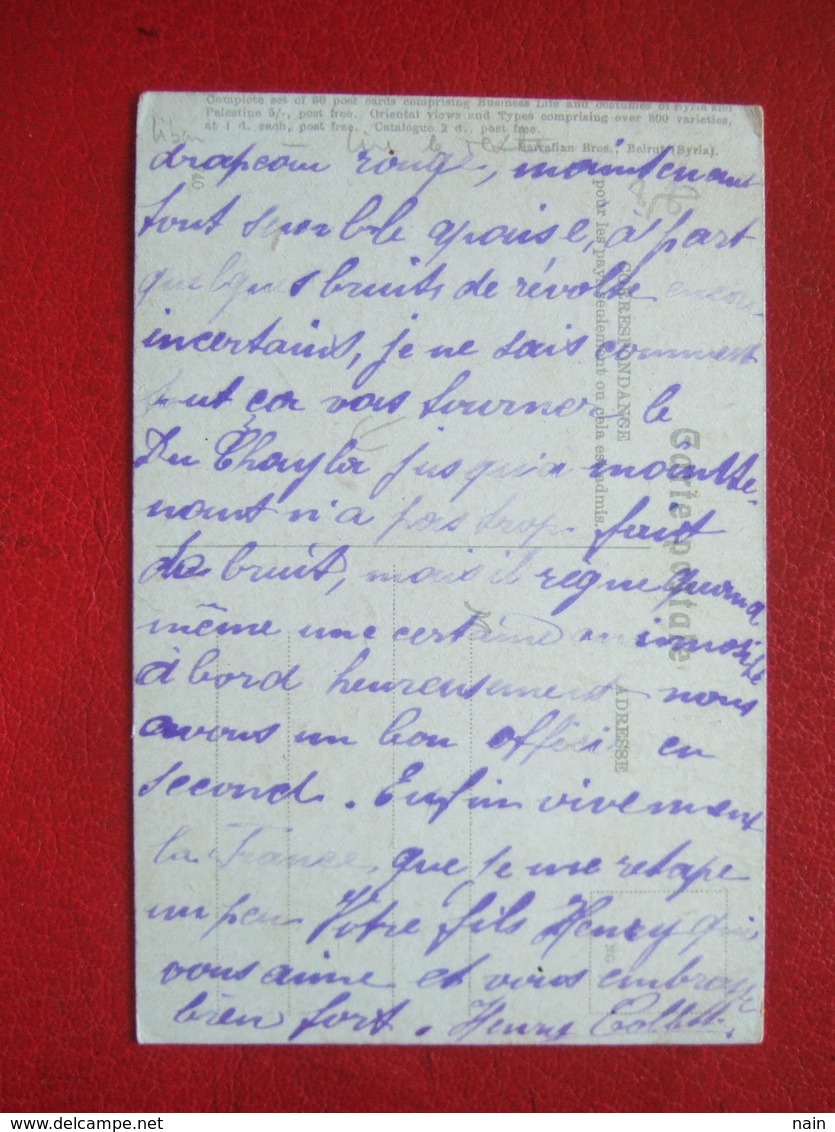 Complete set of 60 post cards comprising Business Life and costumes of Syria and
Palestine 5/-, post free. Oriental views and Types comprising over 800 varieties,
at 1 d. each, post free. Catalogue 2 d., post free.
Sarrafian Bros., Beirut (Syria).
Liban
drapeau rouge, maintenant
tout semble apaisé, à part
quelques bruits de révolte encore
incertains, je ne sais comment
tout ça vas tourner, le
Du Chayla jusqu'a mainte-
nant n'a pas trop fait
de bruit, mais il règne quand
même une certaine animosité
à bord heureusement nous
avons un bon officier en
second. Enfin vivement
la France que je me retape
un peu Votre fils Henry qui
vous aime et vous embrasse
bien fort. Henry
Carte postale
CORRESPONDANCE
pour les pays seulement ou cela est admis.
ADRESSE
nain